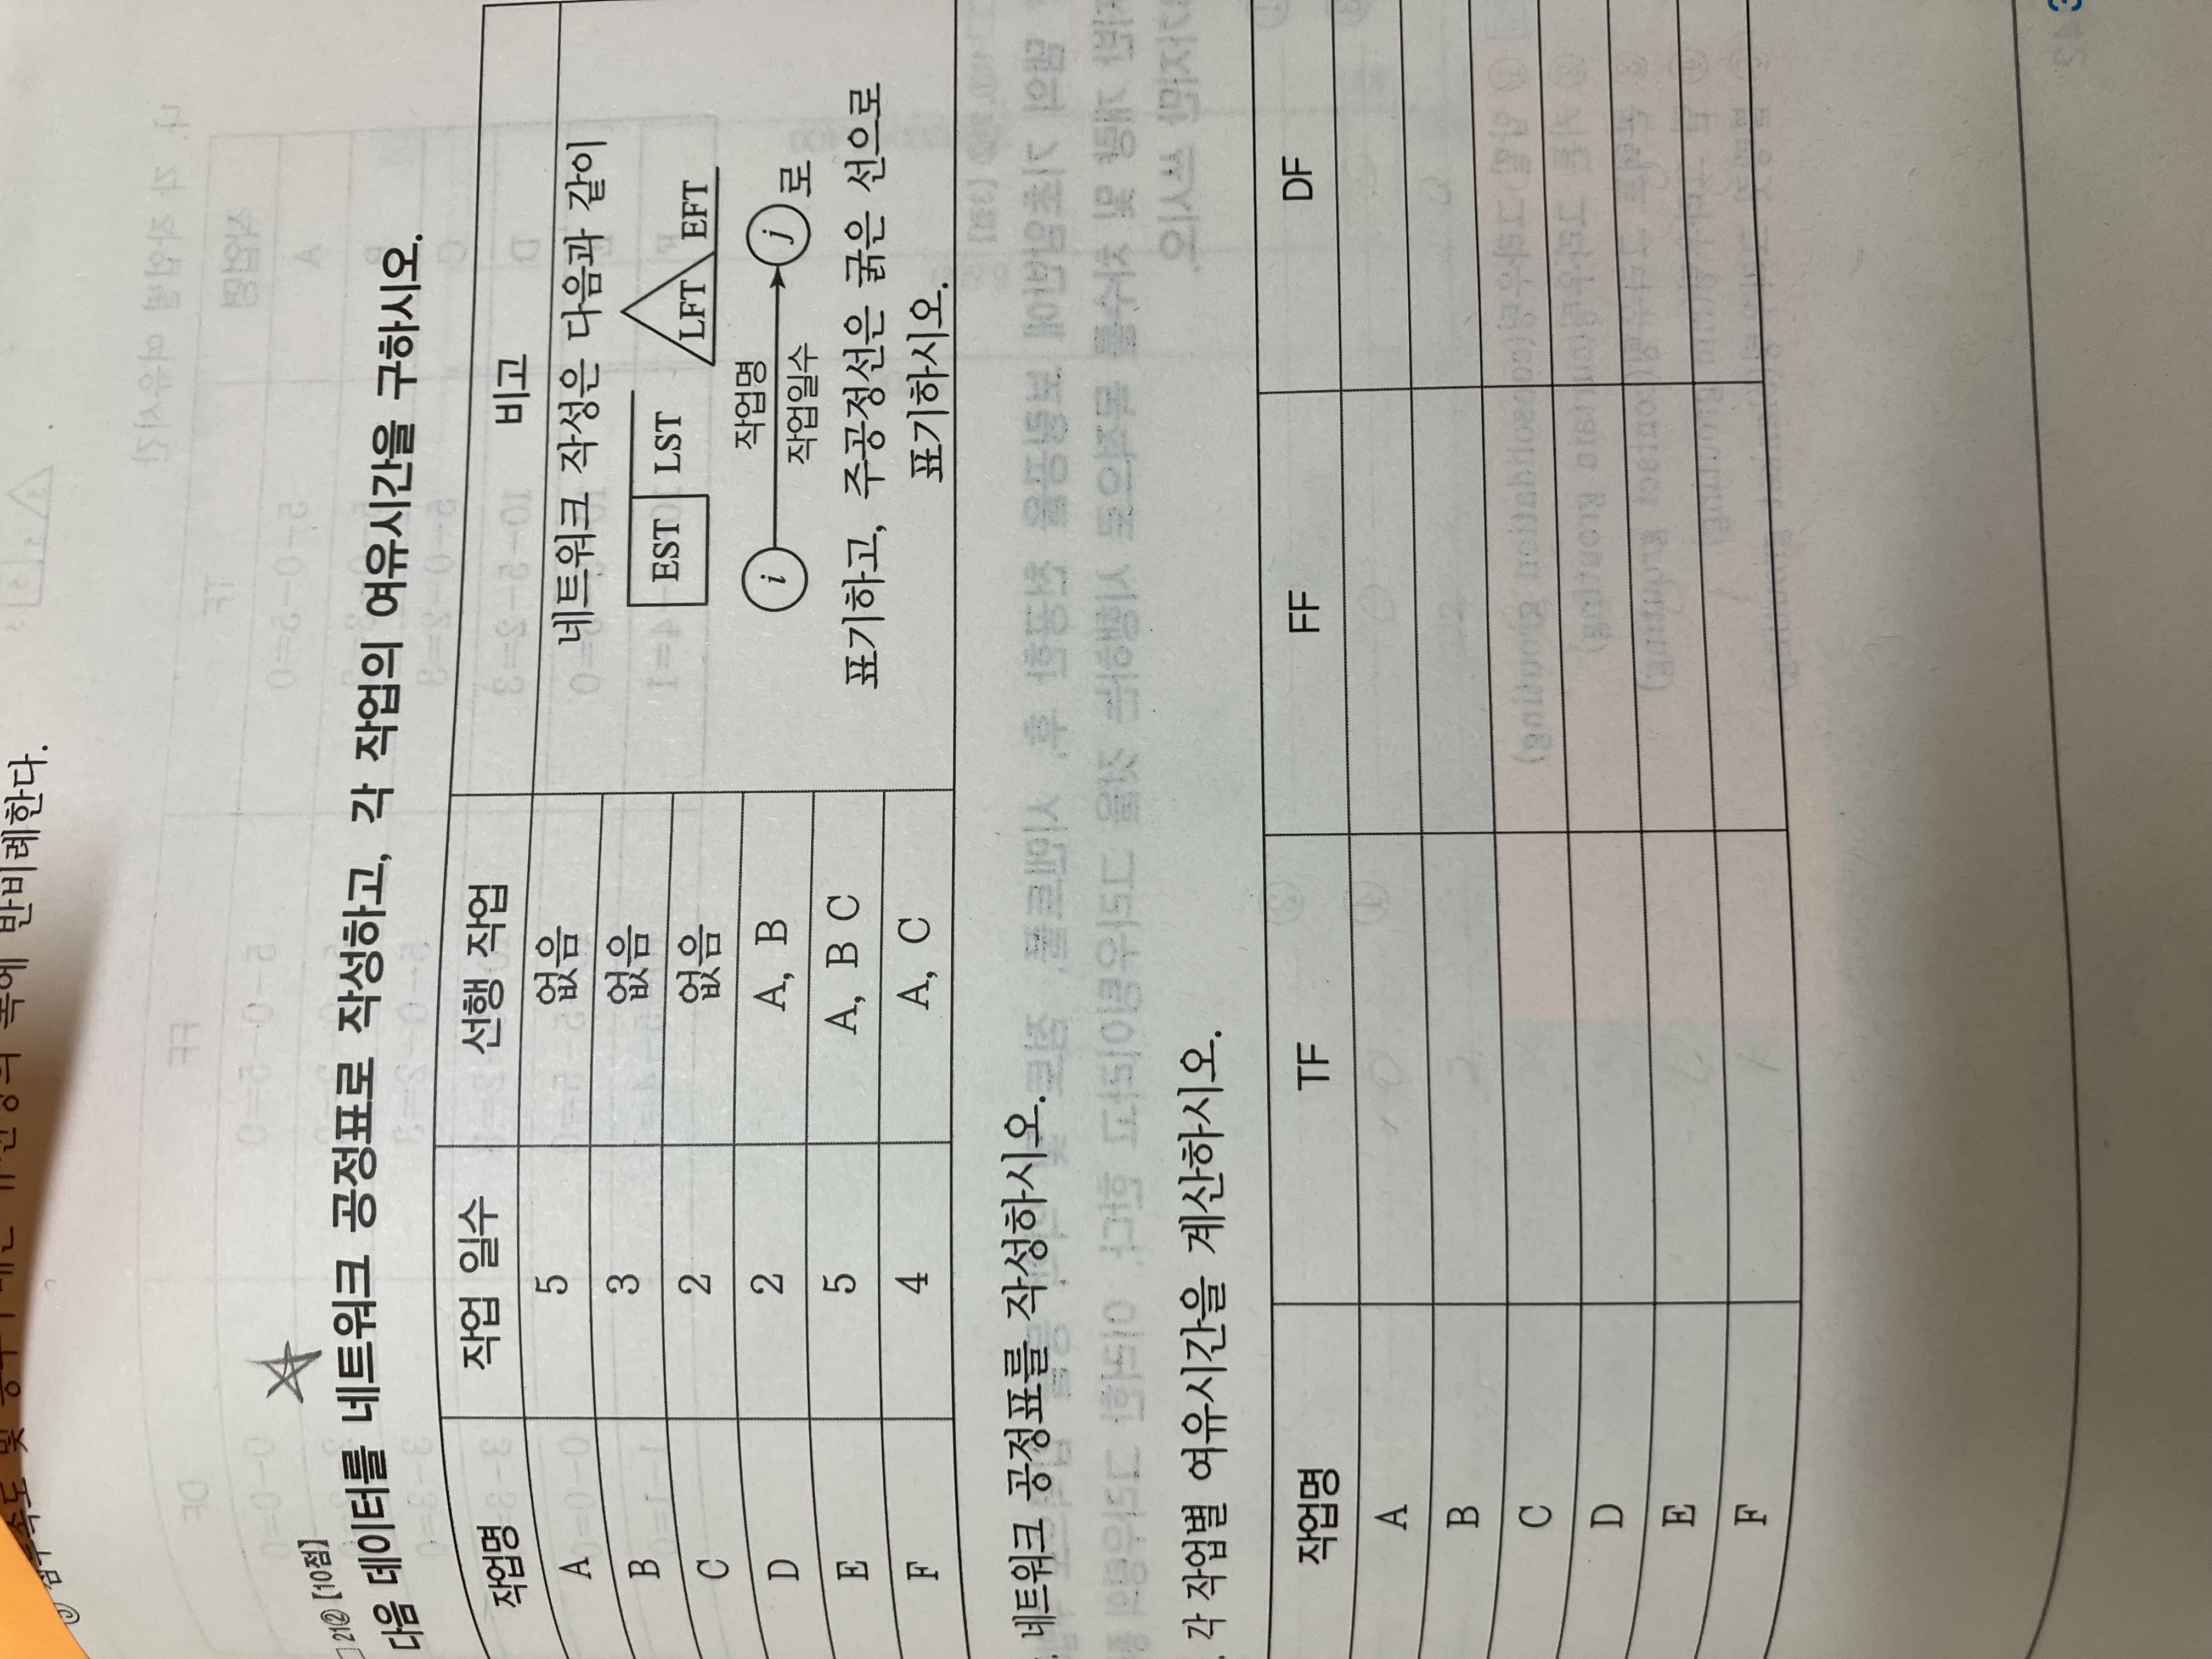 반비례한다.
21② [10점]
다음 데이터를 네트워크 공정표로 작성하고, 각 작업의 여유시간을 구하시오.
작업명 작업 일수 선행 작업 비고
A 5 없음
B 3 없음
C 2 없음
D 2 A, B
E 5 A, B C
F 4 A, C
네트워크 작성은 다음과 같이
EST LST LFT EFT
작업명
i j 로
작업일수
표기하고, 주공정선은 굵은 선으로
표기하시오.
네트워크 공정표를 작성하시오.
각 작업별 여유시간을 계산하시오.
작업명 TF FF DF
A
B
C
D
E
F